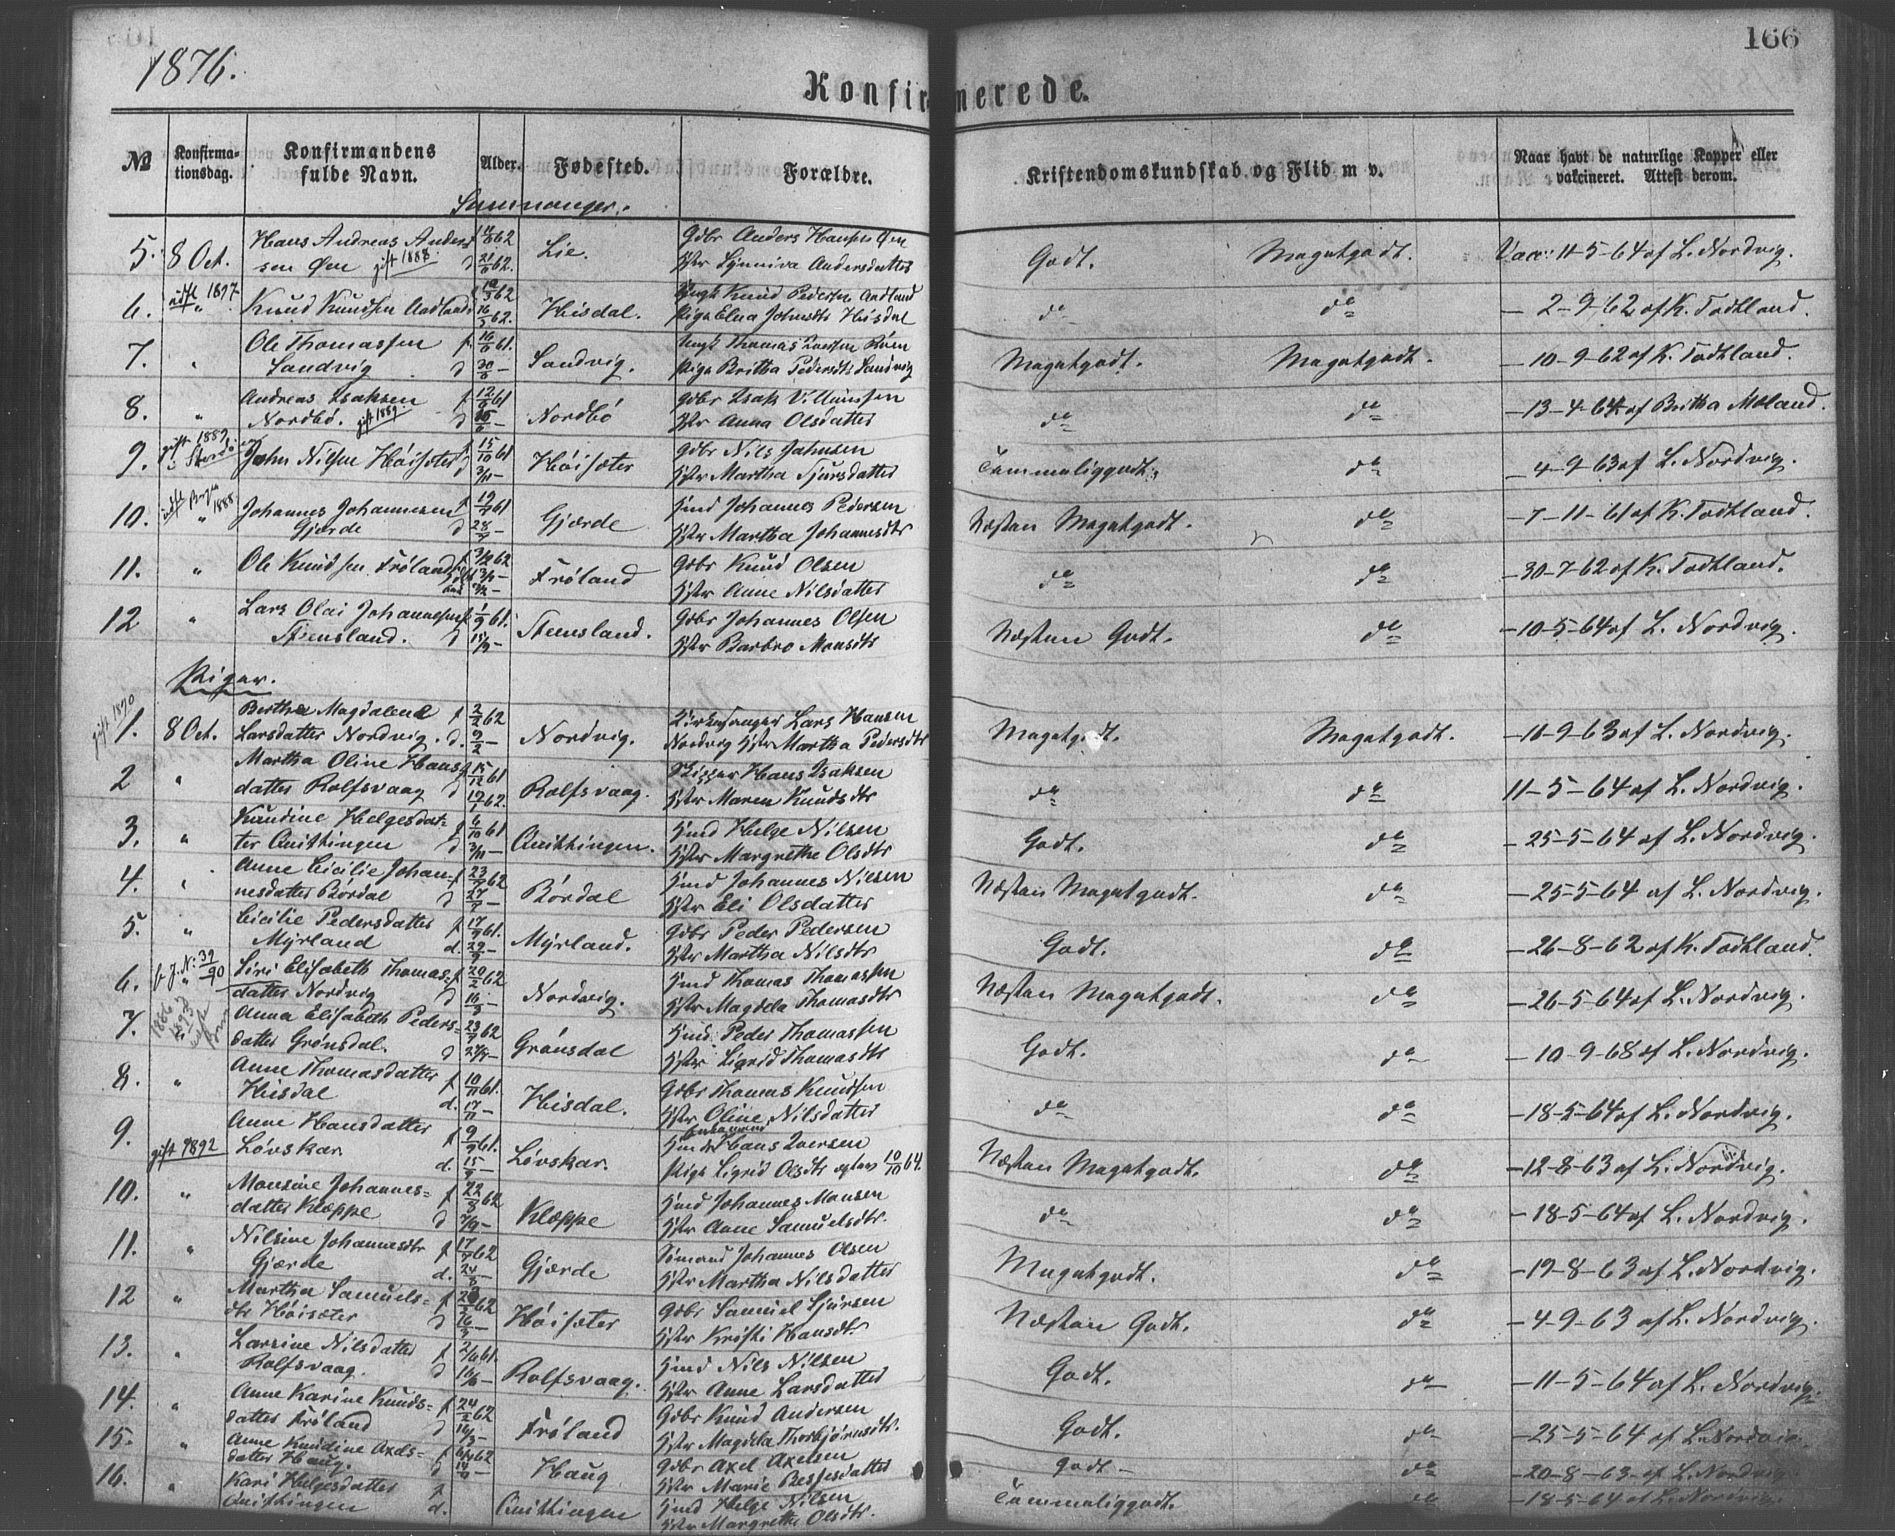 1876.
166
Konfirmerede.
№ Konfirma-tionsdag. Konfirmandens fulde Navn. Alder. Fødested. Forældre. Kristendomskundskab og Flid m v. Naar havt de naturlige Kopper eller vakcineret. Attest derom.
Samnanger.
5. 8 Oct. Hans Andreas Ander- f 62 Lie. Gdbr Anders Hansen Øen Godt. Megetgodt. Vacc: 11-5-64 af L. Nordvig.
sen Øen gift 1888. d 21/6 62. Hstr Synniva Andersdatter
6. udfl 1877 " Knud Knudsen Aadland 62 Hisdal. Ungk Knud Pedersen Aadland do do - 2-9-62 af K. Todtland.
16/3 62. Pige Elna Johnsdtr Hisdal
7. " Ole Thomassen f. 61. Sandvig. Ungk Thomas Iversen Megetgodt. Megetgodt. - 10-9-62 af K. Todtland.
Sandvig d 30/6 - Pige Britha Pedersdtr Sandvig
8. " Andreas Isaksen f 12/6 61 Nordbø Gdbr Isak Villumsen do do - 13-4-64 af Britha Moland.
Nordbø. gift 1889 d - Hstr Anna Olsdatter
9. gift 1889 i John Nilsen Høisæter f 15/10 61 Høisæter Gdbr Nils Johnsen Temmeliggodt. do - 4-9-63 af L. Nordvig.
d 3/11 - Hstr Martha Sjursdatter
10. udfl Bergen 1888 " Johannes Johannesen f 19/7 61 Gjærde Hmd Johannes Pedersen Næsten Megetgodt. do - 7-11-61 af K. Todtland.
Gjærde d 28/7 - Hstr Martha Johannesdtr
11. " Ole Knudsen Frøland f 62 Frøland Gdbr Knud Olsen do do - 30-7-62 af K. Todtland.
Hstr Anne Nilsdatter
12 " Lars Olai Johannesen f 1/9 61. Steensland. Gdbr Johannes Olsen Næsten Godt. do - 10-5-64 af L. Nordvig.
Steensland. d 15/9 - Hstr Barbro Monsdtr
Piger.
1. gift 1890 8 Oct. Berthe Magdalene f 2/2 62 Nordvig. Kirkesanger Lars Hansen Megetgodt. Megetgodt. - 10-9-63 af L. Nordvig.
Larsdatter Nordvig. d. 9/2 - Nordvig Hstr Martha Pedersdtr
2 " Martha Oline Hans- f 15/12 61 Rolfsvaag. Skipper Hans Isaksen do do 11-5-64 af L. Nordvig.
datter Rolfsvaag d 19/1 62. Hstr Maren Knudsdtr
3. " Knudine Helgesdat- f 6/10 61 Qvittingen. Hmd Helge Nilsen Godt. do - 25-5-64 af L. Nordvig.
ter Qvittingen d 3/11 - Hstr Margrethe Olsdtr
4. " Anne Cicilie Johan- f 23/7 62 Børdal Hmd Johannes Nilsen Næsten Megetgodt. do - 25-5-64 af L. Nordvig.
nesdatter Børdal d 27/7 - Hstr Eli Olsdatter
5. " Cicilie Pedersdatter f 17/9 61. Myrland. Gdbr Peder Pedersen Godt. do - 26-8-62 af K. Todtland.
Myrland d. 29/9 - Hstr Martha Nilsdtr
6. b J. N: 39/90 " Siri Elisabeth Thomas- f 20/2 62 Nordvig. Hmd Thomas Thomassen Næsten Megetgodt. do - 26-5-64 af L. Nordvig.
datter Nordvig d 16/3 - Hstr Magdela Thomasdtr
7. Anna Elisabeth Peders- 23/7 62 Grønsdal Hmd. Peder Thomassen Godt. do - 10-9-68 af L. Nordvig.
datter Grønsdal. d 27/7 - Hstr Sigrid Thomasdtr
8. " Anne Thomasdatter f 10/11 61. Hisdal. Gdbr Thomas Knudsen do do - 18-5-64 af L. Nordvig.
Hisdal d. 17/11 - Hstr Oline Nilsdatter
9. gift 1892 Anne Hansdatter f 9/9 61. Løvskar. Hmd Hans Iversen Næsten Megetgodt. do - 12-8-63 af L. Nordvig.
Løvskar d. 15/9 - Pige Sigrid Olsdtr 10/10 64.
10. " Monsine Johannes- f 22/8 62 Kleppe Hmd Johannes Monsen do do - 18-5-64 af L. Nordvig.
datter Kleppe d 7/9 - Hstr Anne Samuelsdtr.
11. " Nilsine Johannesdtr f 17/7 62 Gjærde Sømand Johannes Olsen Megetgodt. do - 19-8-63 af L. Nordvig.
Gjærde d. 24/8 - Hstr Martha Nilsdatter
12 " Martha Samuels- f 62 Høisæter Gdbr Samuel Sjursen Næsten Godt. do - 4-9-63 af L. Nordvig.
dtr Høisæter d 16/3 - Hstr Kristi Hansdtr
13. " Larsine Nilsdatter f 2/6 61. Rolfsvaag. Hmd Nils Nilsen Godt. do - 11-5-64 af L. Nordvig.
Rolfsvaag. d 16/6 - Hstr Anne Larsdatter
14. " Anne Karine Knuds- f 24/2 62 Frøland Gdbr Knud Andersen Godt. do - 25-5-64 af L. Nordvig.
datter Frøland d 16/3 - Hstr Magdela Thorbjørnsdtr.
15. " Anne Knudine Axels- 62 Haug Gdbr Axel Axelsen Godt - do - 20-8-63 af L. Nordvig.
datter Haug. d - Hstr Marie Bessesdatter
16. " Kari Helgesdatter f Qvittingen Hmd Helge Nilsen Temmeliggodt. do - 18-5-64 af L. Nordvig.
Qvittingen d. Hstr Margrethe Olsdtr.